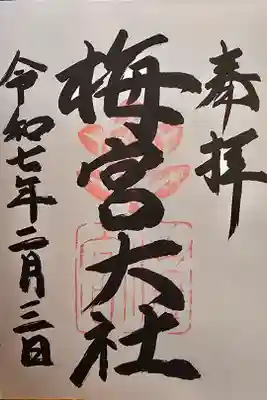 奉拝
梅宮大社
令和七年二月三日